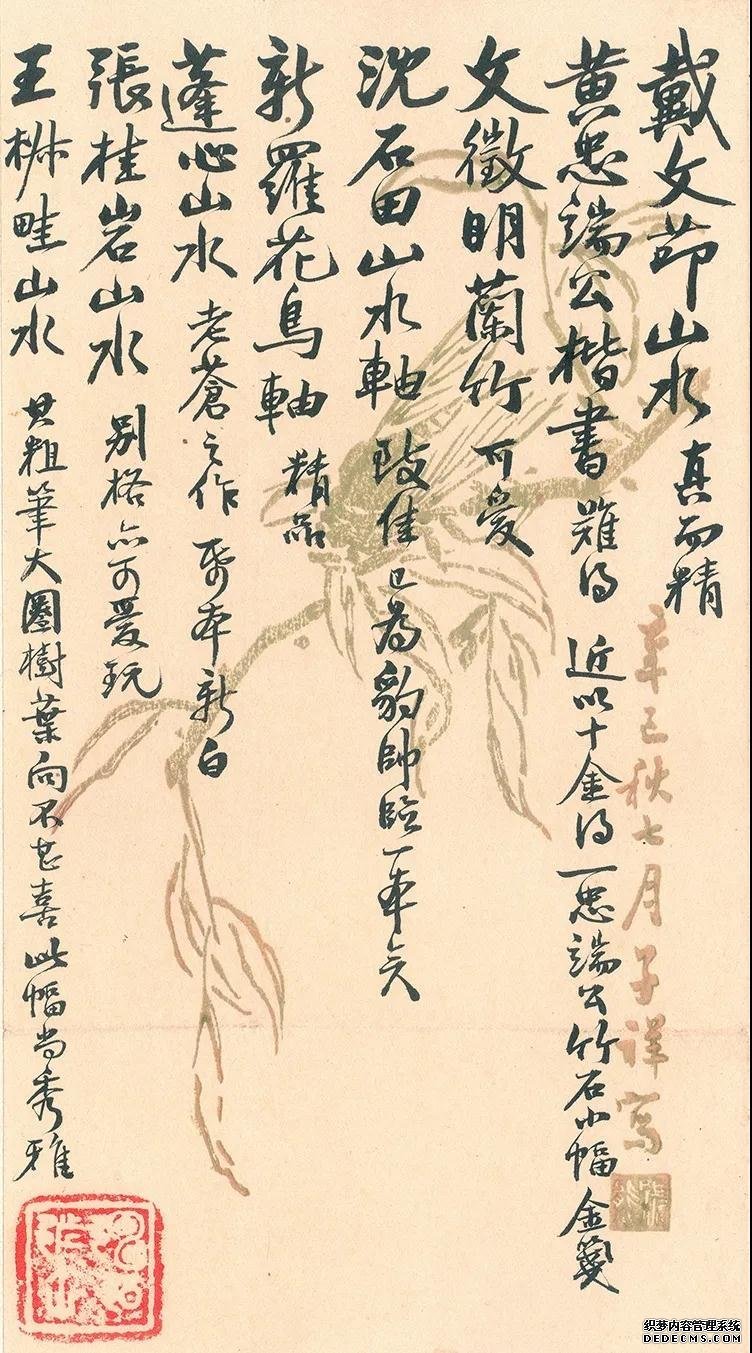 戴文节山水 真而精
黄忠端公楷書 難得 近以十金得一忠端公竹石小幅 金箋
文徵明蘭竹 可愛
沈石田山水軸 致佳 已為豹帥臨一本矣
新羅花鳥軸 精品
蓬心山水 老蒼之作 而本新白
張桂岩山水 别格亦可愛玩
王椒畦山水 其粗筆大圈樹葉向不甚喜 此幅尚秀雅
辛巳秋七月子祥寫
织梦内容管理系统
DEDECMS.COM